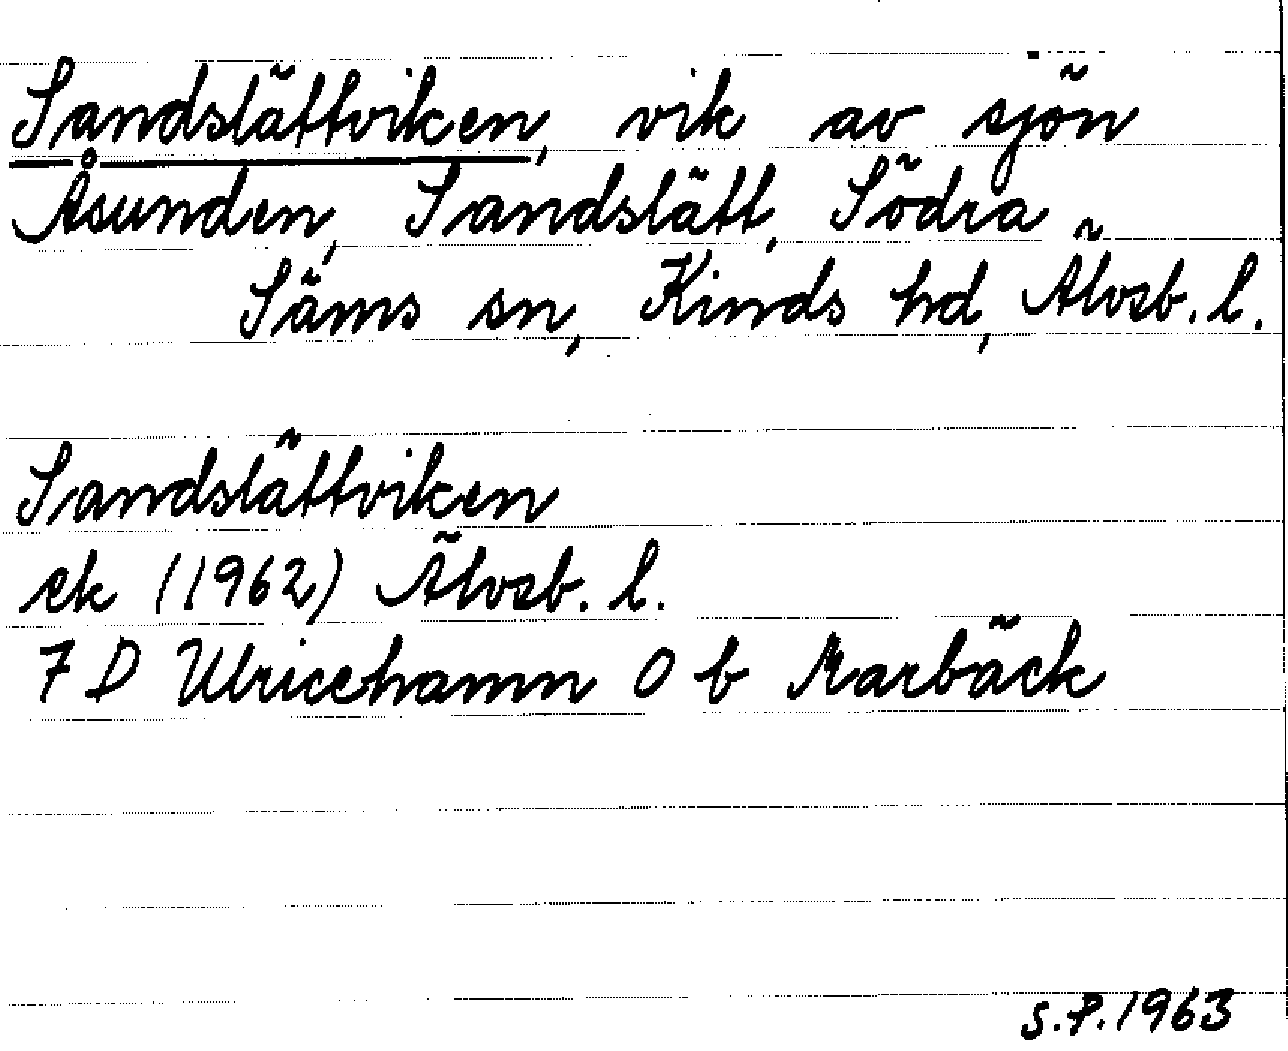 Sandslättviken, vik av sjön
Åsunden, Sandslätt, Södra
Säms sn, Kinds hd, Älvsb. l.
Sandslättviken
ek (1962) Älvsb. l.
7 D Ulricehamn 0 b Marbäck
S.P. 1963